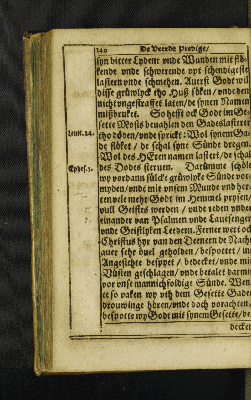 140 De Veerde Predige/
syn bitter Lydent vnde Wunden mit flö-
kende vnde schwerende vpt schendigeste
lastern vnde schmehen. Auerst Godt wil
disse grüwlyck tho Huß söken/vnde den
nicht vngestraffet laten/de synen Namen
mißbruket. So hefft ock Godt im Ge-
sette Mosis beuahlen den Gadeslasterer
Leuit. 24. tho döden/vnde sprickt: Wol synem Got
de flöket / de schal syne Sünde dregen.
Wol des HEren namen lastert/de schal
Ephes. 5. des Dodes steruen. Darümme schöle
wy vordann sülcke grüwlyke Sünde vor-
myden/vnde mit vnsem Munde vnd her-
ten vele mehr Godt im Hemmel prysen/
vull Geistes werden / vnde reden vnder
einander van Psalmen vnde Lauesengen
vnde Geistlyken Leedern. Ferner wert ock
Christus hyr van den Deenern de Nacht
auer sehr öuel geholden / bespottet / im
Angesichte bespyet / bedecket/vnde mit
Vüsten geschlagen/vnde betalet darmit
vor vnse mannichfoldige Sünde. Wen
et so vaken wy vth dem Gesette Gades
drouwinge hören/vnde doch vorachten/
bespotte wy Godt mit synem Gesette/be-
decket